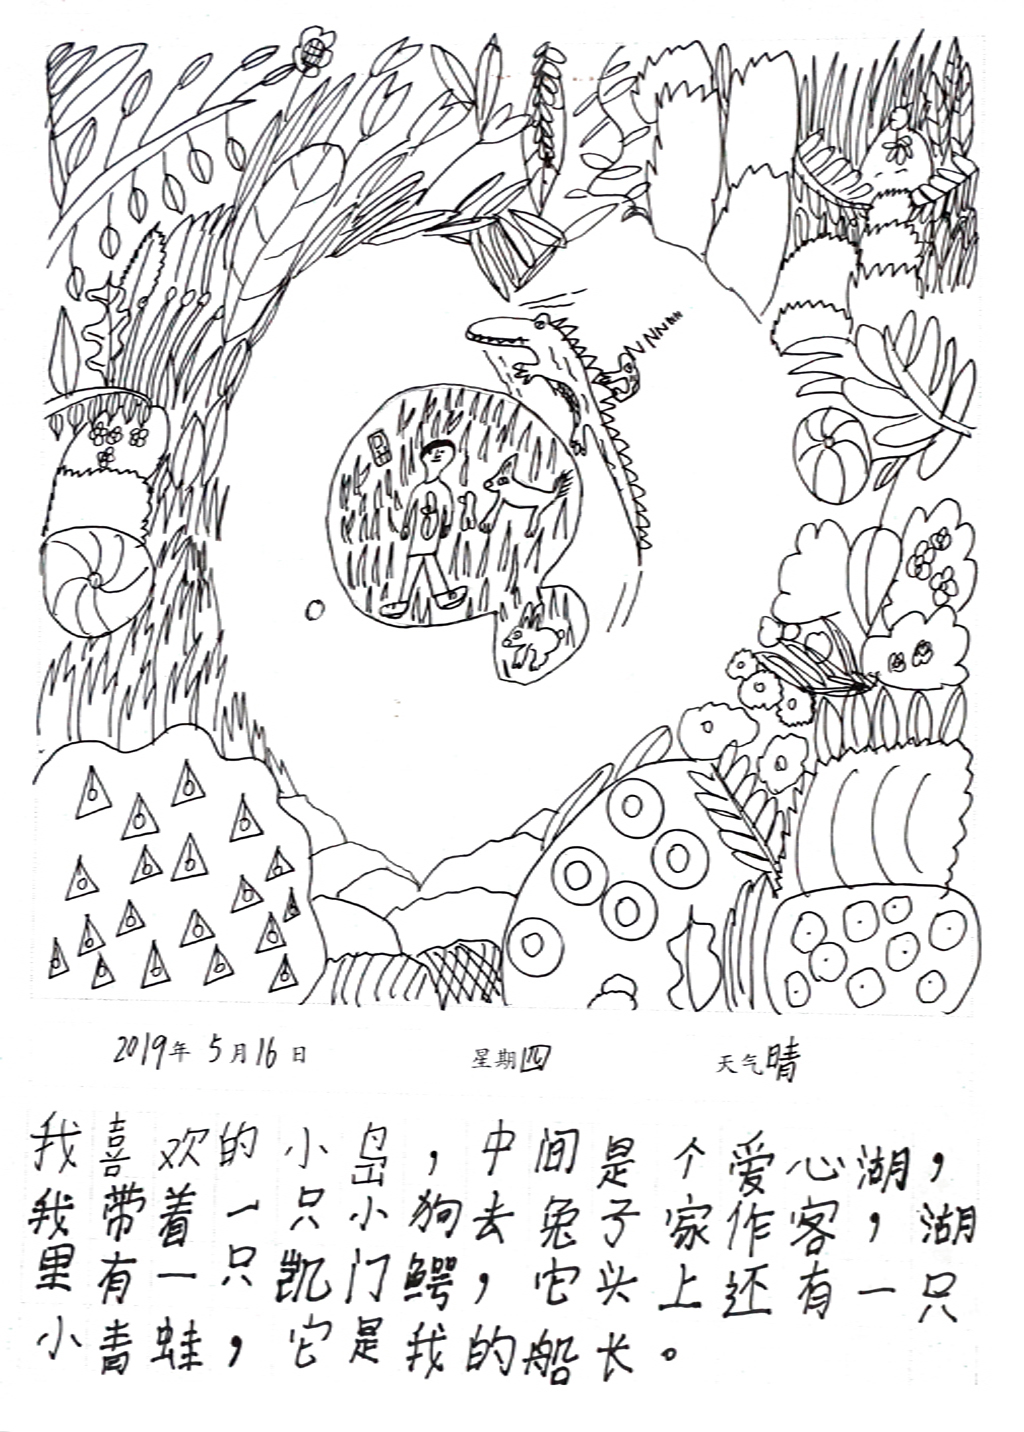 2019年 5月16日 星期四 天气晴
我喜欢的小岛，中间是个爱心湖，
我带着一只小狗去兔子家作客，湖
里有一只凯门鳄，它头上还有一只
小青蛙，它是我的船长。